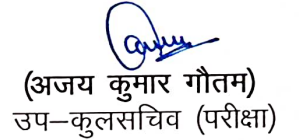 (अजय कुमार गौतम)
उप–कुलसचिव (परीक्षा)